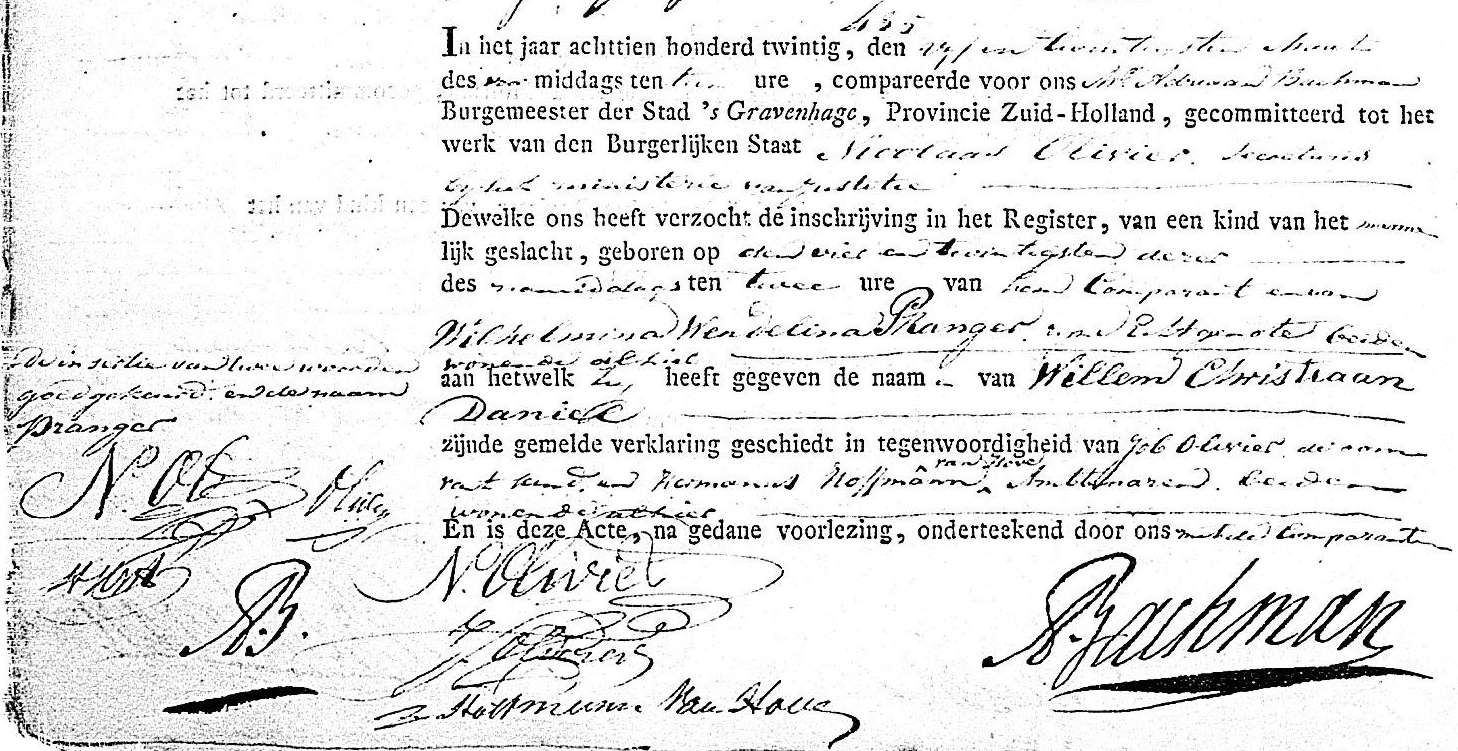 485
In het jaar achttien honderd twintig, den vyf en twintigsten Maart
des voor middags ten tien ure , compareerde voor ons Mr. Adriaan Bachman
Burgemeester der Stad 's Gravenhage, Provincie Zuid-Holland, gecommitteerd tot het
werk van den Burgerlijken Staat Nicolaas Olivier, secretaris
by het ministerie van Justitie
Dewelke ons heeft verzocht de inschrijving in het Register, van een kind van het manne
lijk geslacht, geboren op den vier en twintigsten dezer
des namiddags ten twee ure van hem Comparant en van
Wilhelmina Wendelina Pranger, zyne Echtgenote beiden
wonende alhier
aan hetwelk hy heeft gegeven de naam van Willem Christiaan
Daniel
zijnde gemelde verklaring geschiedt in tegenwoordigheid van Job Olivier,
en Hermanus Hoffmann van Hove, Amttenaren, beiden
wonende alhier
En is deze Acte, na gedane voorlezing, onderteekend door ons Comparanten
De insertie van twee woorden
goedgekeurd, en de naam
Pranger
N. Ol
AB.
N. Olivier
J. Olivier
Hoffmann Van Hove
ABachman